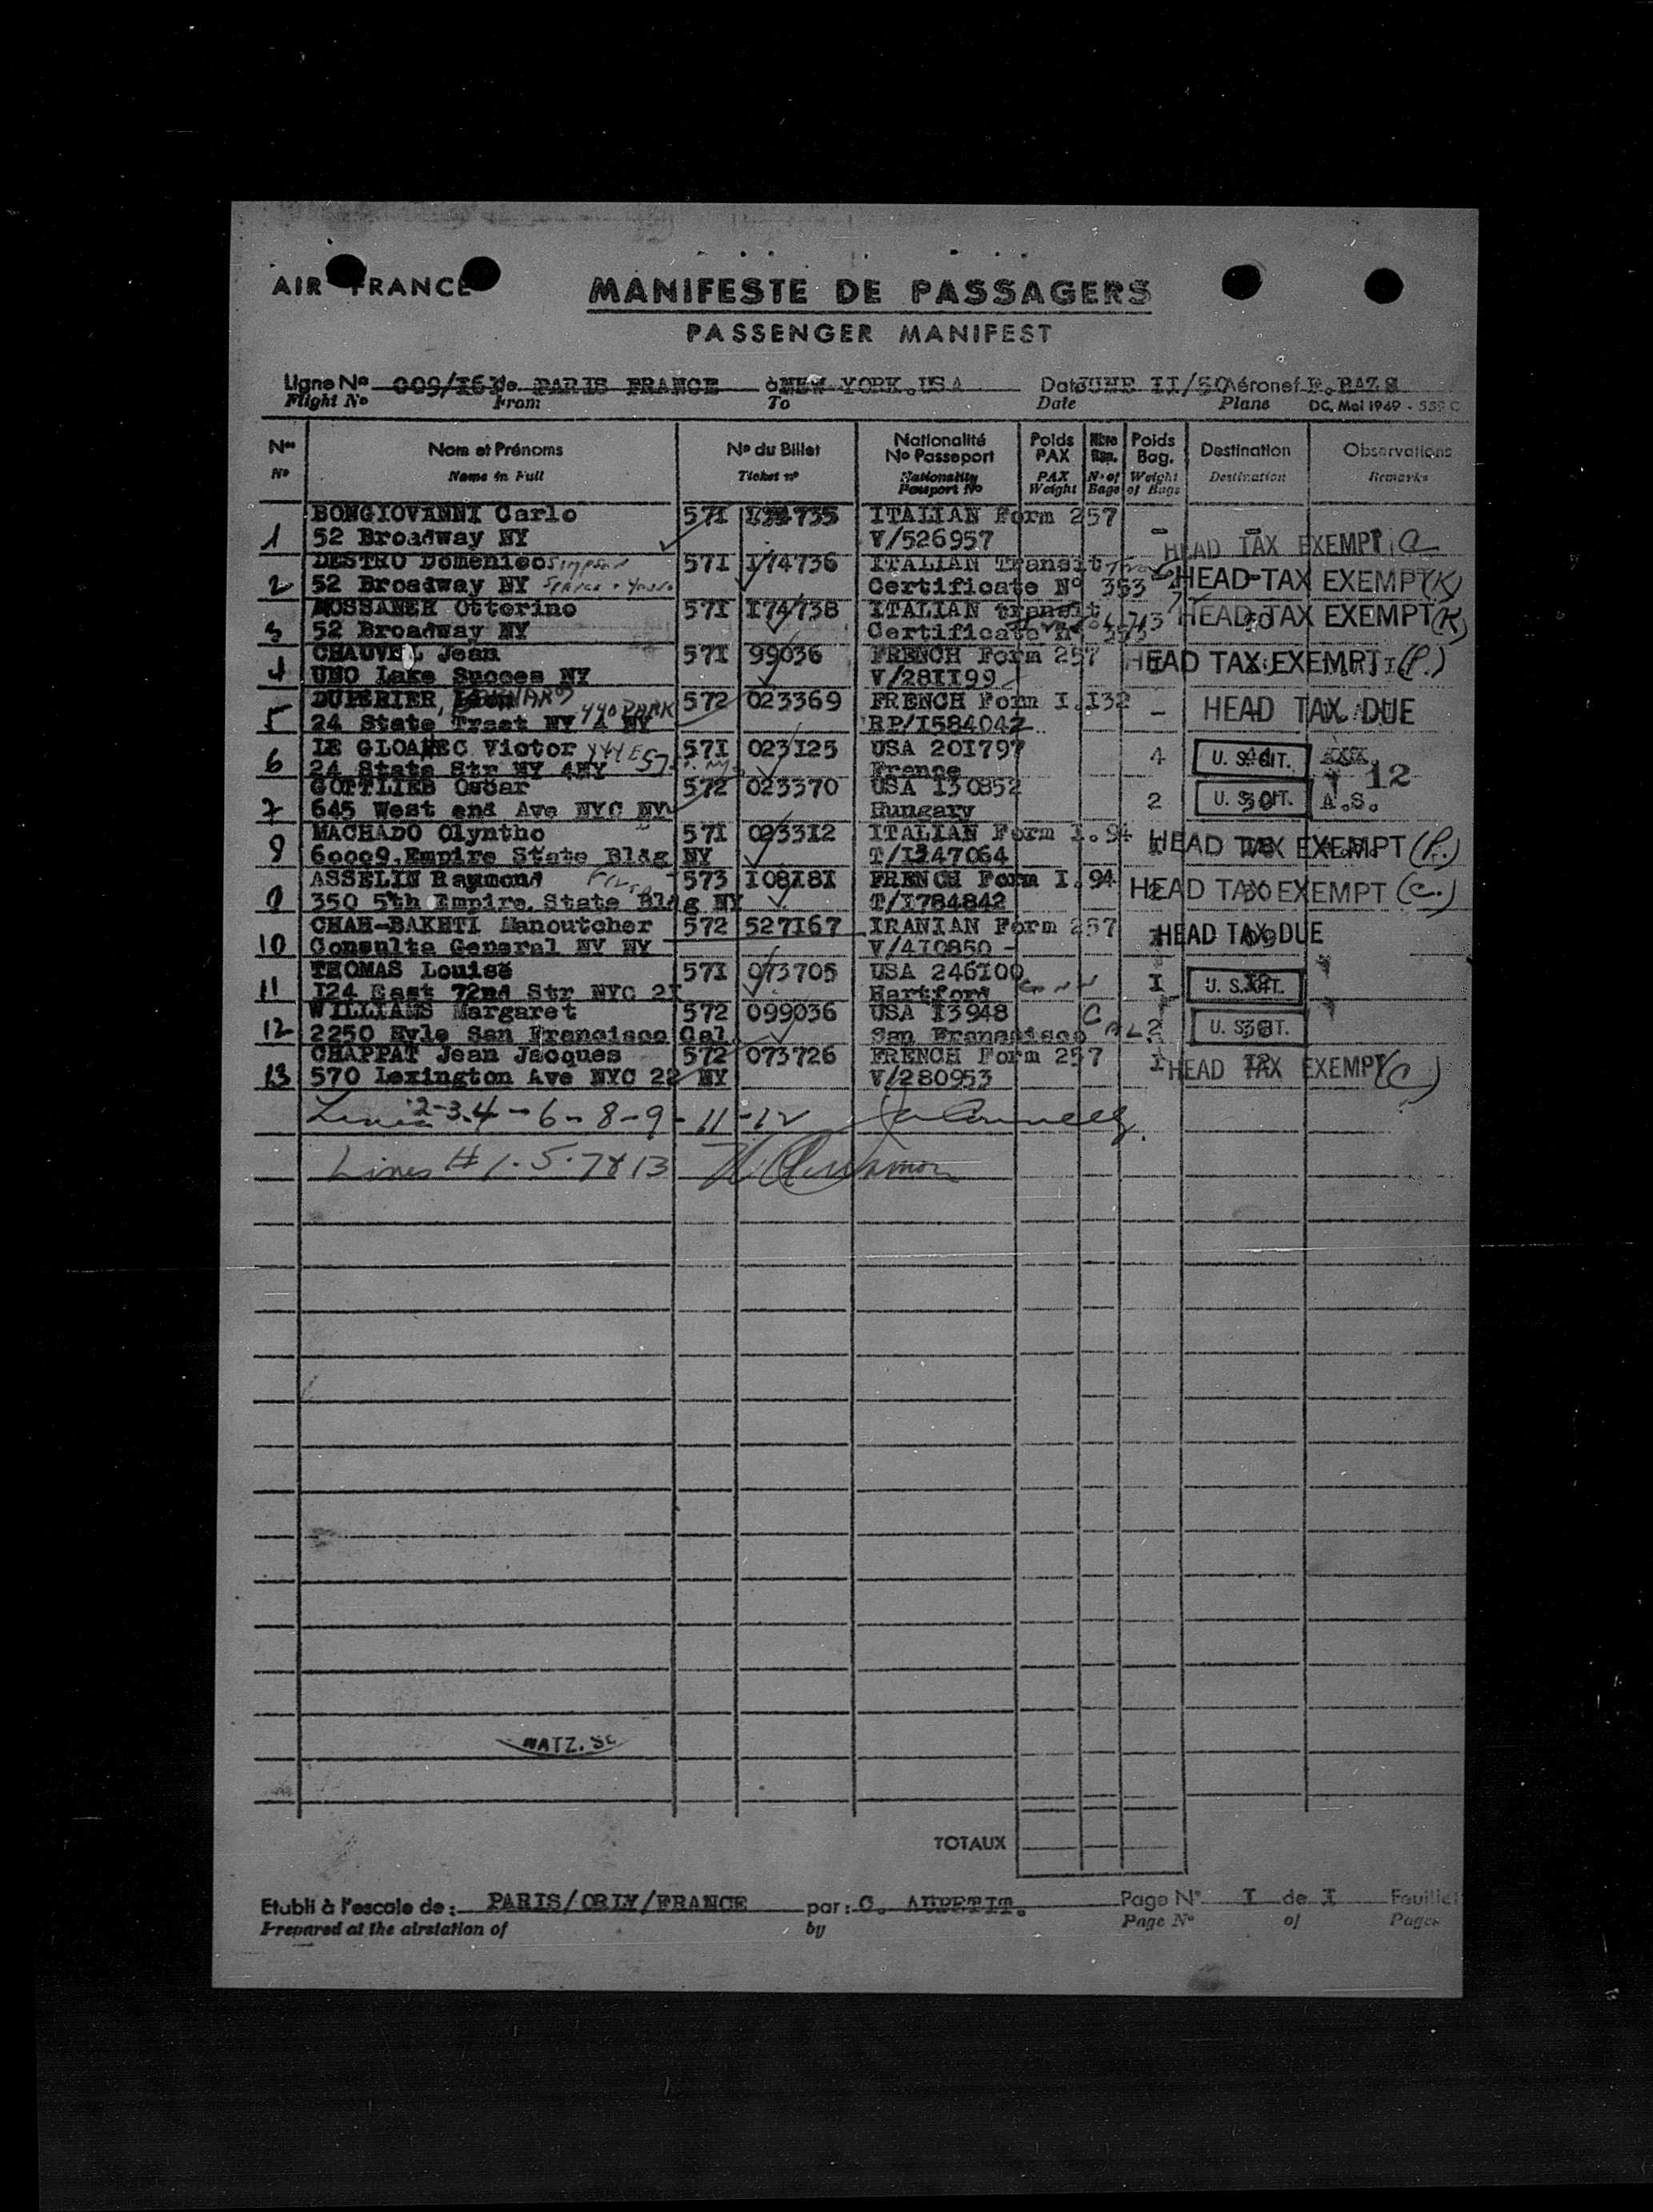 AIR FRANCE
MANIFESTE DE PASSAGERS
PASSENGER MANIFEST
Ligne Nº 009/I61 de PARIS FRANCE à NEW YORK.USA Date JUNE II/50 Aéronef F.BAZS
Flight Nº From To Date Plane DC. Mai 1949 - 559 C
Nos Nom et Prénoms Nº du Billet Nationalité Nº Passeport Poids PAX Nbre Bag. Poids Bag. Destination Observations
Nº Name in Full Ticket nº Nationality Passport Nº PAX Weight Nº of Bags Weight of Bags Destination Remarks
BONGIOVANNI Carlo 57I 174735 ITALIAN Form 257 - -
1 52 Broadway NY V/526957 HEAD TAX EXEMPT
DESTRO Domenico 57I I74736 ITALIAN Transit
2 52 Broadway NY Certificate Nº 353 HEAD TAX EXEMPT (K)
Otterino 57I I74738 ITALIAN transit
3 52 Broadway NY Certificate Nº HEAD TAX EXEMPT (K)
CHAUVEL Jean 57I 99036 FRENCH Form 257 HEAD TAX EXEMPT (P.)
4 UNO Lake Succes NY V/28II99
DUPERIER, BERNARD 440 PARK 572 023369 FRENCH Form I.I32
5 24 State Treet NY 4 NY RP/I584042 - HEAD TAX DUE
LE GLOAHEC Victor 444 E 57 57I 023I25 USA 20I797 4 U. S. CIT.
6 24 State Str NY 4NY France 12
GOTTLIEB Oscar 572 023370 USA I30852
7 645 West end Ave NYC NY Hungary 2 U. S. CIT. A.S.
MACHADO Olyntho 57I 0233I2 ITALIAN Form I.94
8 60009.Empire State Bldg NY T/I347064 HEAD TAX EXEMPT (P.)
ASSELIN Raymond 573 I08I8I FRENCH Form I.94
9 350 5th Empire. State Bldg NY T/I784842 HEAD TAX EXEMPT (C.)
CHAH-BAKHTI Manoutcher 572 527I67 IRANIAN Form 257
10 Consulta General NY NY V/4I0850 HEAD TAX DUE
THOMAS Louise 57I 073705 USA 246I00
11 I24 East 72nd Str NYC 2I Hartford Conn I U. S. CIT.
WILLIAMS Margaret 572 099036 USA I3948
12 2250 Hyle San Francisco Cal. San Francisco CAL 2 U. S. CIT.
CHAPPAT Jean Jacques 572 073726 FRENCH Form 257
13 570 Lexington Ave NYC 22 NY V/280953 I HEAD TAX EXEMPT (C)
Lines 2-3-4-6-8-9-11-12
Lines # 1.5.7 & 13
TOTAUX
Etabli à l'escale de: PARIS/ORLY/FRANCE par: C. AUPETIT. Page Nº I de I Feuillet
Prepared at the airstation of by Page Nº of Pages